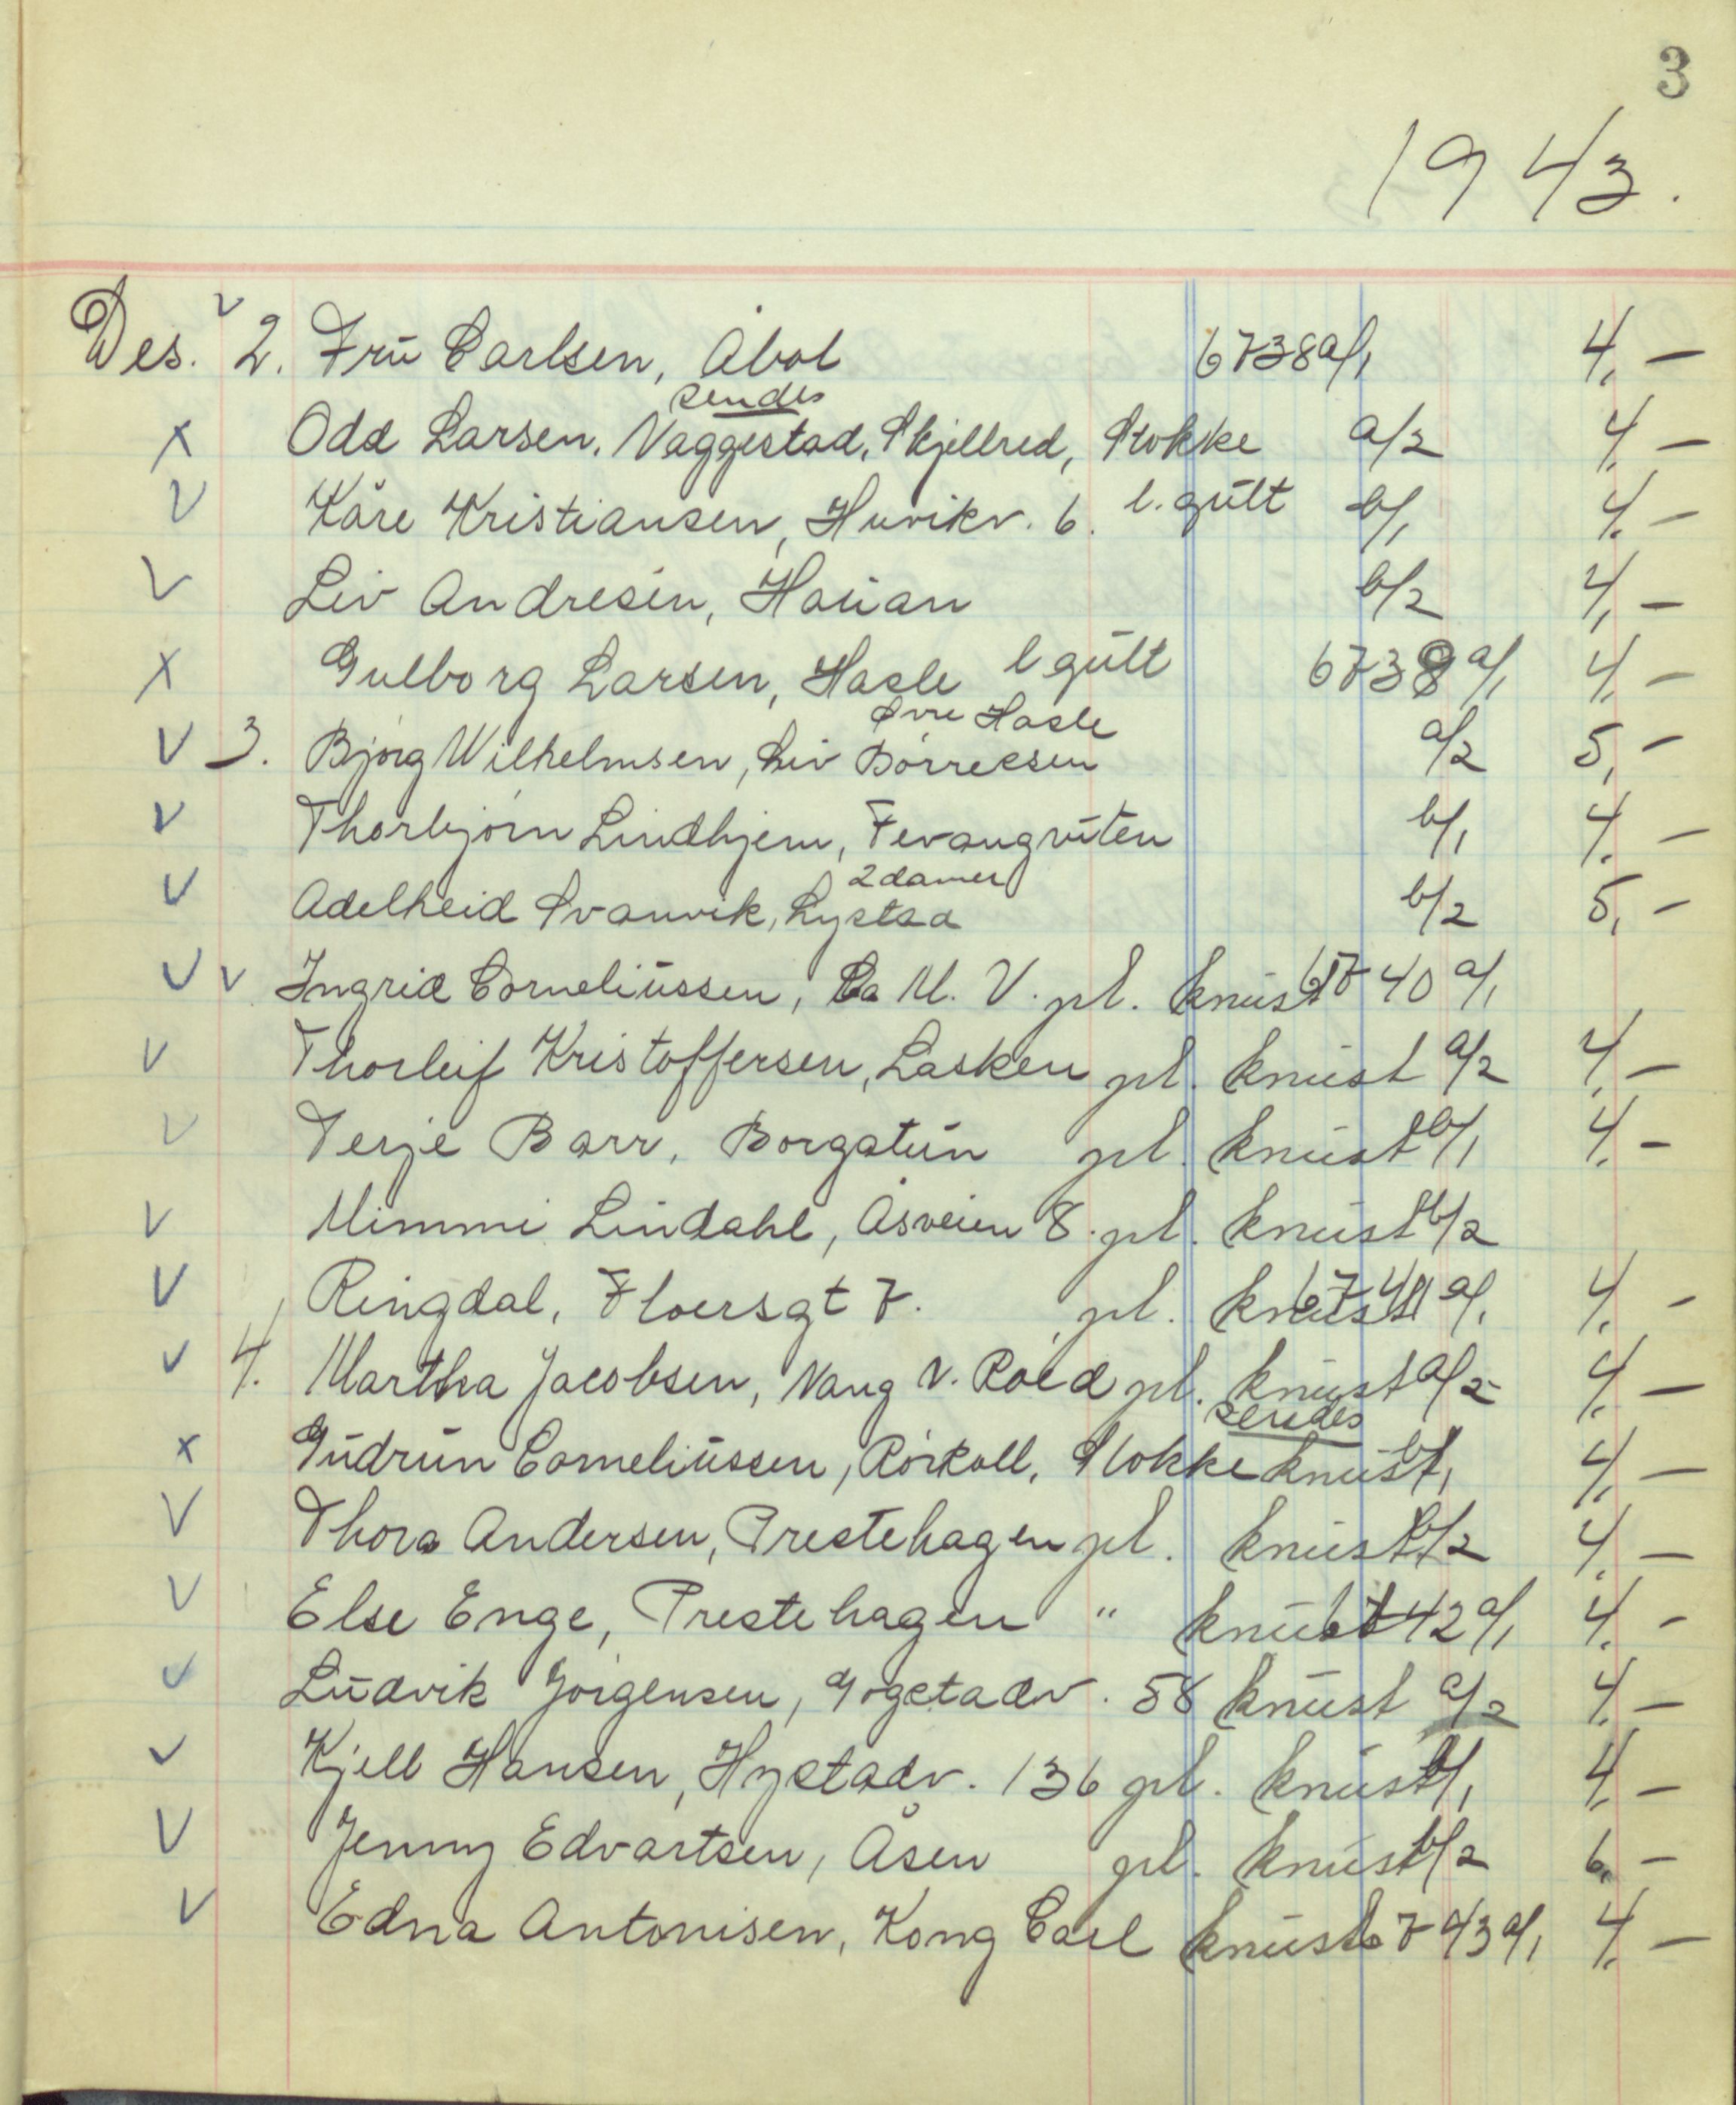 3
1943.
Des. v 2. Frū Carlsen, Åbol 6738 a/1 4,-
sendes
x Odd Larsen, Vaggestad, Skjellred, Stokke a/2 4,-
v Kåre Kristiansen, Huvikv. 6. l. gūlt b/1 4,-
v Liv Andresen, Hauan b/2 4,-
x Gulborg Larsen, Hasle l gūlt 6739 a/1 4,-
Øvre Hasle
v 3. Bjørg Wilhelmsen, Liv Børresen a/2 5,-
v Thorbjørn Lindhjem, Fevangrūten b/1 4,-
2 damer
v Adelheid Svanvik, Lystad b/2 5,-
v v Ingrid Corneliūssen, Ca M. V. pl. knūst 6740 a/1
v Thorleif Kristoffersen, Lasken pl. knūst a/2 4,-
v Terje Barr, Borgatūn pl. knūst b/1 4,-
v Mimmi Lindahl, Åsveien 8. pl. knūst b/2
v Ringdal, Floersgt 7. pl. knūst 6741 a/1 4,-
v 4. Martha Jacobsen, Vang v. Råed pl. knūst a/2 4,-
sendes
x Gūdrūn Corneliūssen, Rørkoll, Stokke knūst b/1 4,-
v Thora Andersen, Prestehagen pl. knūst b/2 4,-
v Else Enge, Prestehagen " knūst 6742 a/1 4,-
v Lūdvik Jørgensen, Gogstadv. 58 knūst a/2 4,-
v Kjell Hansen, Hystadv. 136 pl. knūst b/1 4,-
v Jenny Edvartsen, Åsen pl. knūst b/2 6,-
v Edna Antonisen, Kong Carl knūst 6743 a/1 4,-